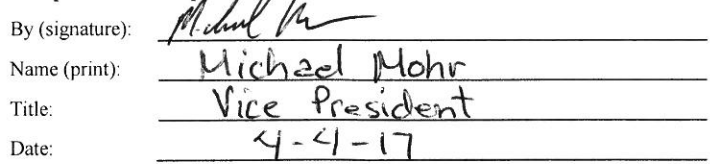 By (signature): Michael M
Name (print): Michael Mohr
Title: Vice President
Date: 4-4-17